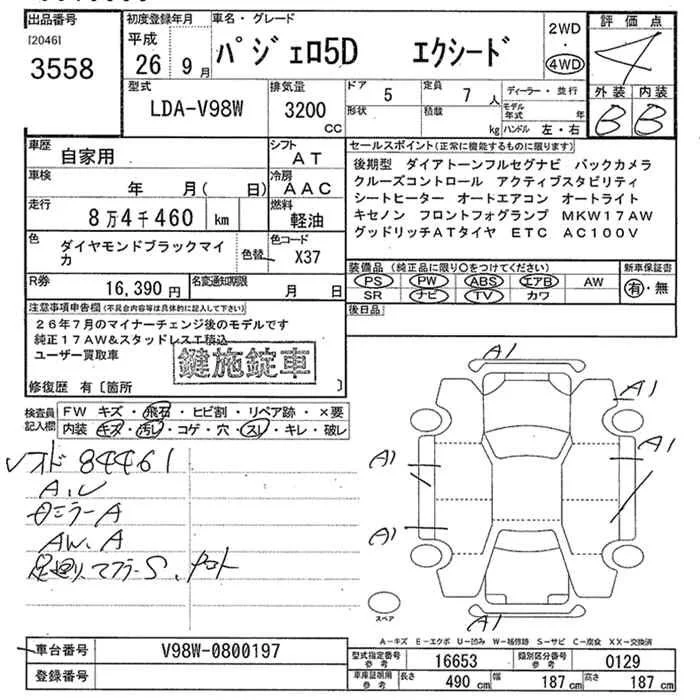 出品番号 初度登録年月 車名・グレード 2WD 評価点
[2046] 平成 パジェロ5D エクシード ・ 4
3558 26年 9月 4WD
型式 排気量 ドア 5 定員 7人 ディーラー・並行 外装 内装
LDA-V98W 3200cc 形状 積載 kg モデル年式 年 B B
ハンドル 左・右
車歴 自家用 シフト AT セールスポイント(正常に機能するものに限ります)
車検 年 月( 日) 冷房 AAC 後期型 ダイアトーンフルセグナビ バックカメラ
クルーズコントロール アクティブスタビリティ
走行 8万4千460 km 燃料 軽油 シートヒーター オートエアコン オートライト
キセノン フロントフォグランプ MKW17AW
色 ダイヤモンドブラックマイカ 色替 色コード X37 グッドリッチATタイヤ ETC AC100V
R券 16,390円 名変通知期限 月 日 装備品(純正品に限り○をつけてください) 新車保証書
PS PW ABS エアB AW 有・無
SR ナビ TV カワ
注意事項申告欄(不具合内容等は具体的に記入して下さい) 後日品
26年7月のマイナーチェンジ後のモデルです
純正17AW&スタッドレスT積込
ユーザー買取車 鍵施錠車
修復歴 有[箇所 ]
検査員記入欄 FW キズ・飛石・ヒビ割・リペア跡・×要
内装 キズ・汚レ・コゲ・穴・スレ・キレ・破レ
オド 84461
A,U
ミラーA
AW,A
足廻り、マフラーS、
A1
A1
A1
A1
A1
A1
スペア
A-キズ E-エクボ U-凹み W-補修跡 S-サビ C-腐食 XX-交換済
車台番号 V98W-0800197 型式指定番号 参考 16653 類別区分番号 参考 0129
登録番号 車庫証明用 参考 長さ 490 cm 幅 187 cm 高さ 187 cm